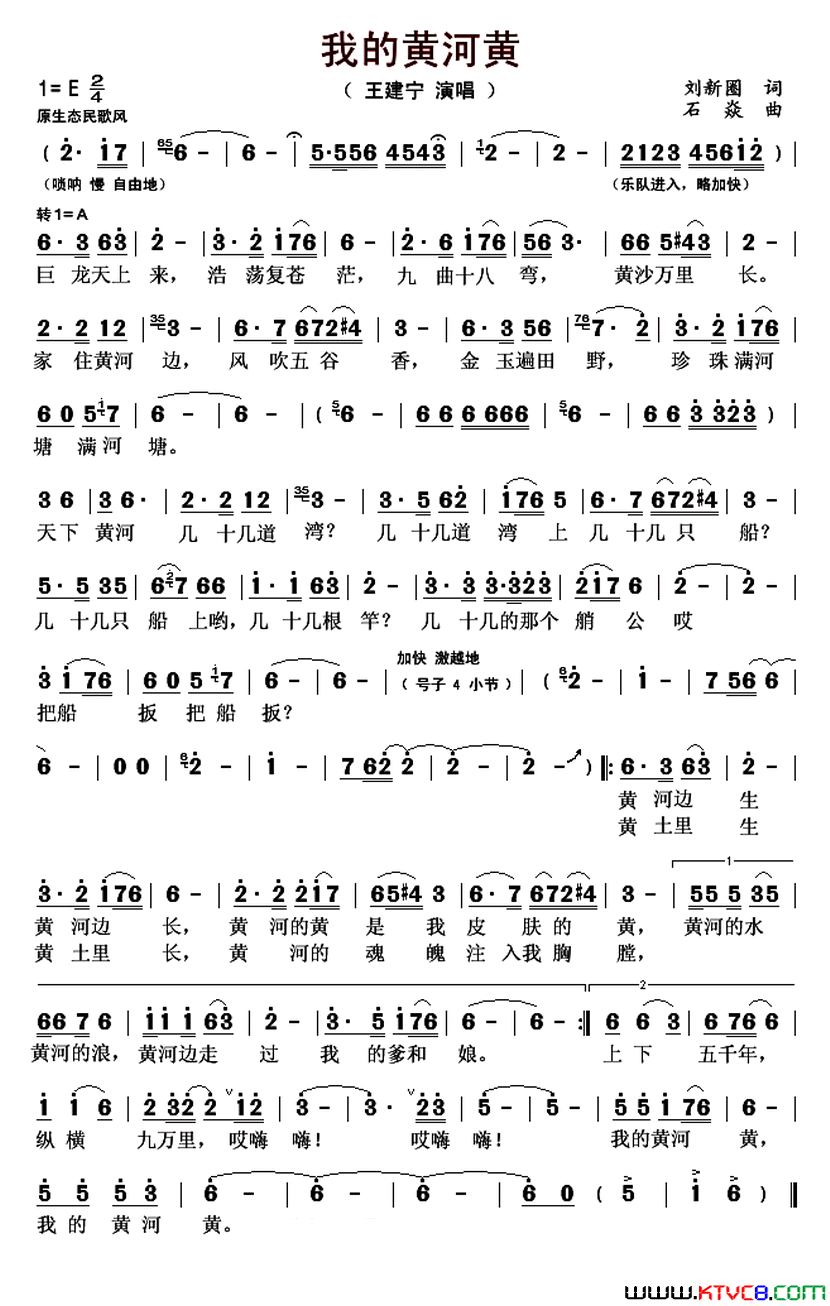 我的黄河黄
1= E 2/4
（ 王建宁 演唱 ）
刘新圈 词
原生态民歌风
石 焱 曲
( 2· 17 | 65 6 - | 6 - | 5·556 4543 | 1 2 - | 2 - | 2123 45612 ) |
（唢呐 慢 自由地）
（乐队进入，略加快）
转1=A
6· 3 63 | 2 - | 3· 2 176 | 6 - | 2· 6 176 | 56 3· | 66 5#43 | 2 - |
巨 龙天上 来， 浩 荡复苍 茫， 九 曲十八 弯， 黄沙万里 长。
2· 2 12 | 35 3 - | 6· 7 672#4 | 3 - | 6· 3 56 | 76 7· 2 | 3· 2 176 |
家 住黄河 边， 风 吹五谷 香， 金 玉遍田 野， 珍 珠满河
6 0 5 1 7 | 6 - | 6 - | ( 5 6 - | 6 6 6 666 | 5 6 - | 6 6 3 323 ) |
塘 满河 塘。
3 6 | 3 6· | 2· 2 12 | 35 3 - | 3· 5 62 | 176 5 | 6· 7 672#4 | 3 - |
天下 黄河 几 十几道 湾？ 几 十几道 湾 上 几 十几 只 船？
5· 5 35 | 6 2 7 66 | 1· 1 63 | 2 - | 3· 3 3·323 | 217 6 | 2 - | 2 - |
几 十几只 船 上哟，几 十几根 竿？ 几 十几的那个 艄 公 哎
加快 激越地
3 1 76 | 6 0 5 1 7 | 6 - | 6 - |（ 号子 4 小节 ）| ( 6 2 - | 1 - | 7 56 6 |
把船 扳 把船 扳？
6 - | 0 0 | 6 2 - | 1 - | 7 62 2 | 2 - | 2 - ) ‖: 6· 3 63 | 2 - |
黄 河边 生
黄 土里 生
1
3· 2 176 | 6 - | 2· 2 217 | 65#4 3 | 6· 7 672#4 | 3 - | 55 5 35 |
黄 河边 长， 黄 河的黄 是 我 皮 肤的 黄， 黄河的水
黄 土里 长， 黄 河的 魂 魄 注 入我胸 膛，
2
66 7 6 | 11 1 63 | 2 - | 3· 5 176 | 6 - | 6 - :‖ 6 6 3 | 6 76 6 |
黄河的浪， 黄河边走 过 我 的爹和 娘。 上 下 五千年，
1 1 6 | 2 32 2 ∨ 12 | 3 - | 3· ∨ 23 | 5 - | 5 - | 5 5 1 76 | 6 - |
纵 横 九万里，哎嗨 嗨！ 哎嗨 嗨！ 我的黄河 黄，
5 5 5 3 | 6 - | 6 - | 6 - | 6 0 ( 5 | 1 6 ) ‖
我 的 黄 河 黄。
www.KTVC8.com